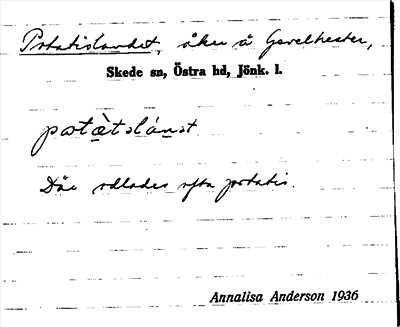 Potatislandet, åker å Gavelhester,
Skede sn, Östra hd, Jönk. l.
patàtslánst
Där odlades ofta potatis.
Annalisa Anderson 1936